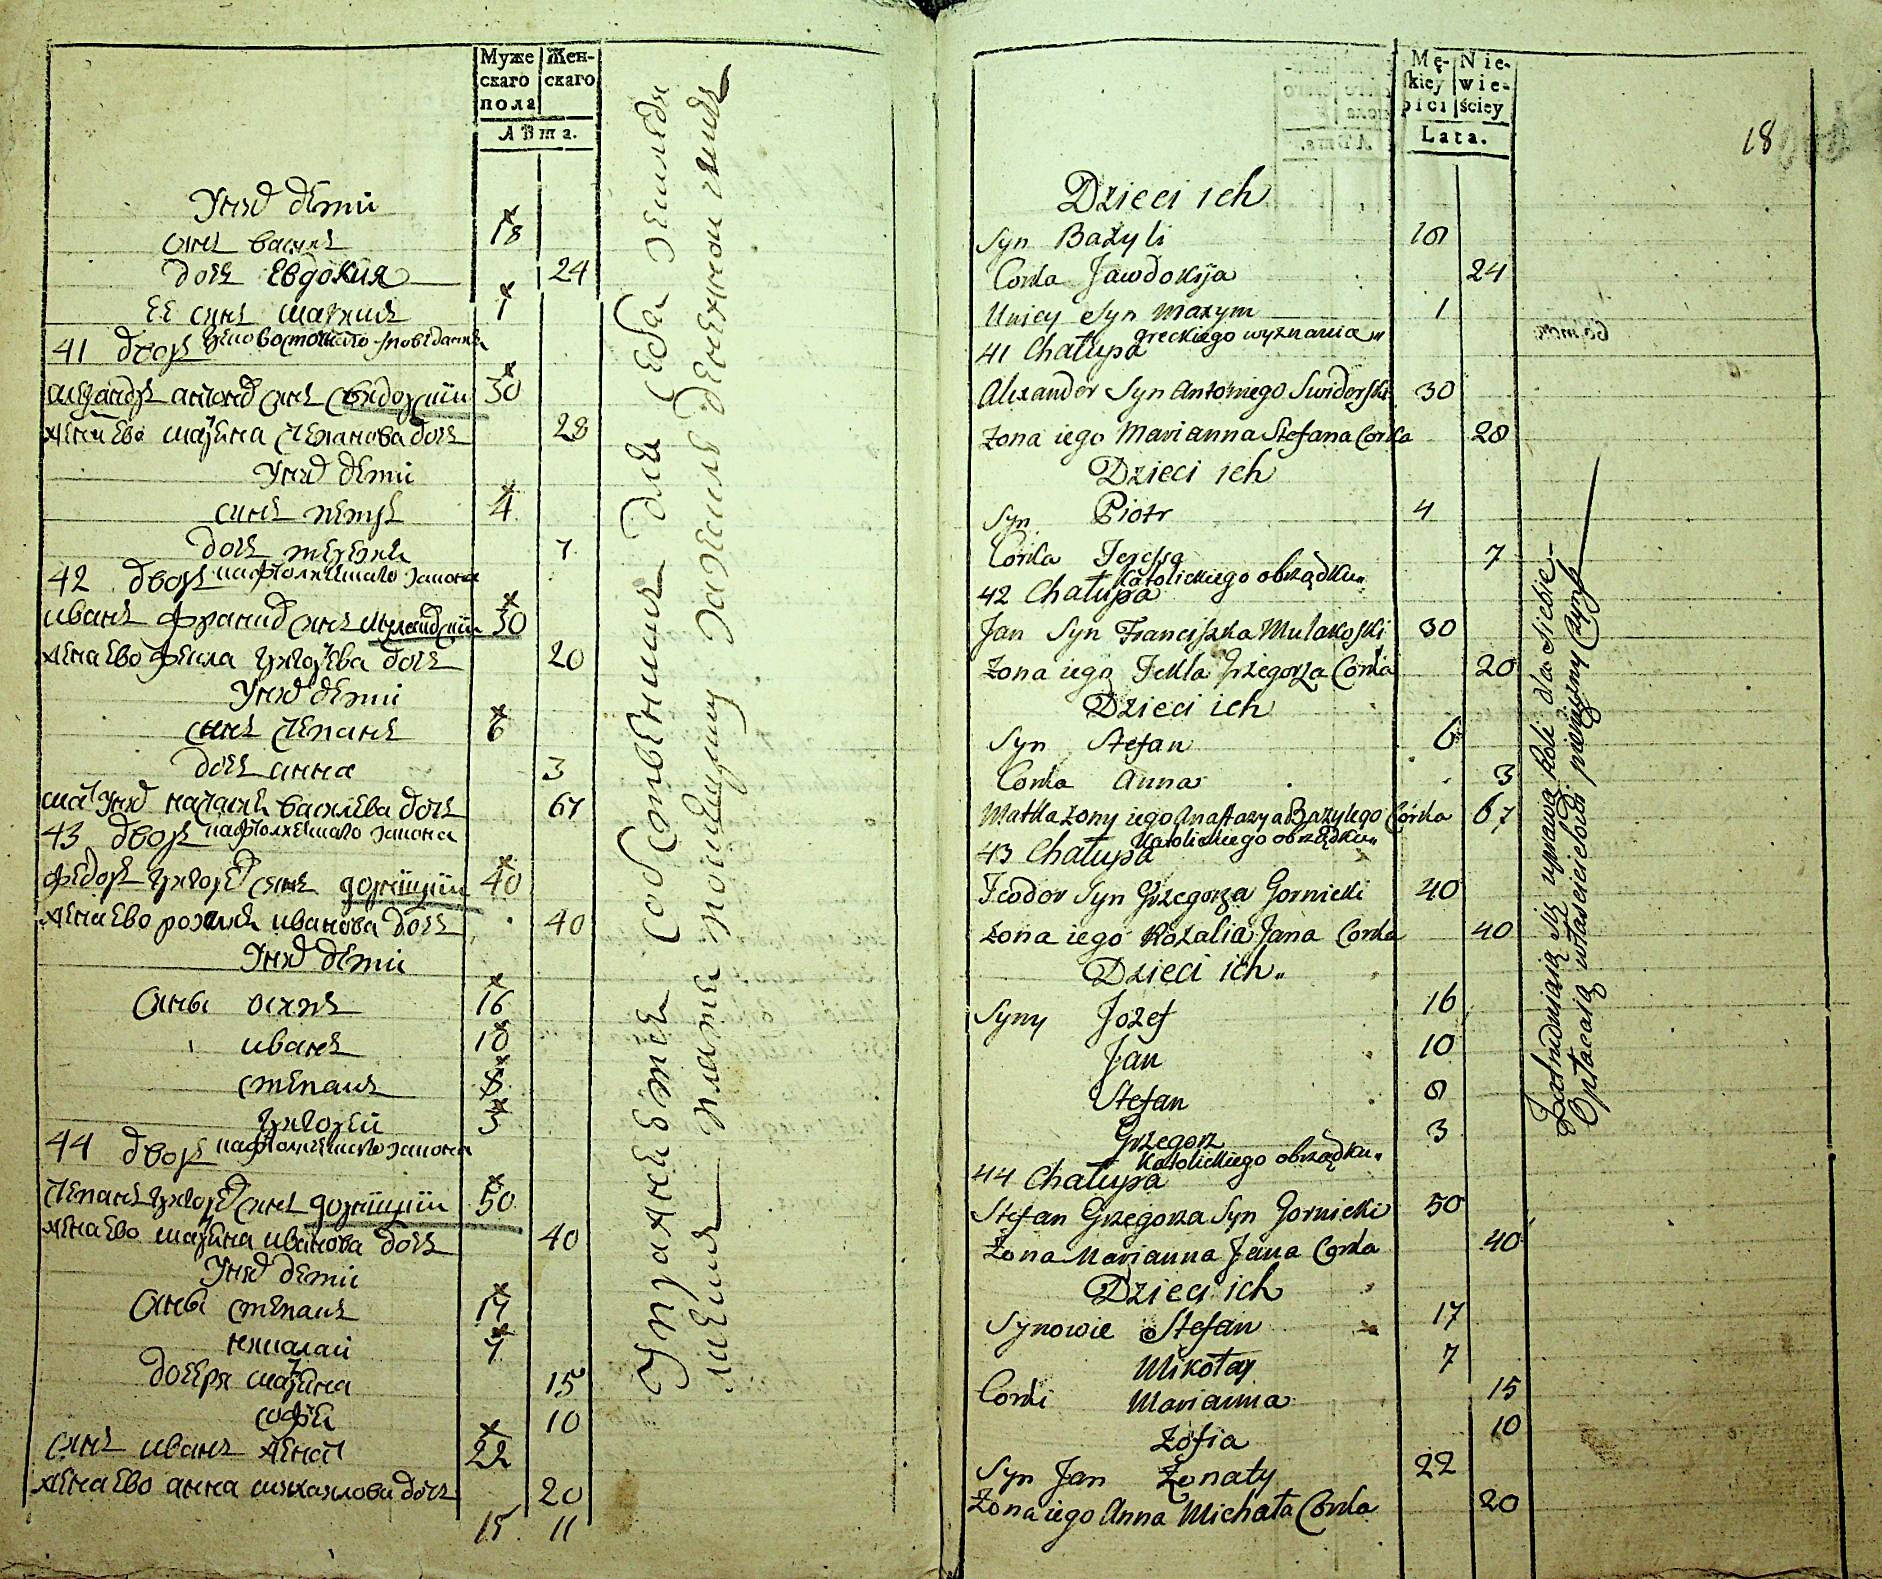 Муже скаго пола
Жен- скаго
Лѣта.
У них дети
синъ василъ 18
дочъ Евдокия 24
ЕЕ синъ 1
41 дворъ
30
жена Ево марина степанова дочъ 28
У них дети
синъ петръ 4
дочъ 7
42 дворъ
иванъ синъ 30
жена Ево григорева дочъ 20
У них дети
синъ степанъ 6
дочъ анна 3
василева дочъ 67
43 дворъ
федоръ григорев синъ 40
жена Ево иванова дочъ 40
У них дети
сины 16
иванъ 10
степанъ 8
григорей 3
44 дворъ
степанъ григорев синъ 50
жена Ево марина иванова дочъ 40
У них дети
сины степанъ 17
николай 7
дочери марина 15
софѣя 10
синъ иванъ женат 22
жена Ево анна михаилова дочъ 20
15 11
Упражняется для себя
Mę- skiey płci
Nie- wie- ściey
Lata.
18
Dzieci ich
Syn Bazyli 18
Corka Jawdokija 24
Syn Maxym 1
41 Chałupa greckiego wyznania
Alexander Syn Antoniego Swiderski 30
Zona iego Marianna Stefana Corka 28
Dzieci ich
Syn Piotr 4
Corka Teressa 7
42 Chałupa Katolickiego obrządku
Jan Syn Franciszka Mulakoski 30
Zona iego Tekla Grzegorza Corka 20
Dzieci ich
Syn Stefan 6
Corka Anna 3
Matka zony iego Anastazya Bazylego Córka 67
43 Chałupa Katolickiego obrządku
Teodor Syn Grzegorza Gornicki 40
Zona iego Rozalia Jana Corka 40
Dzieci ich
Syny Jozef 16
Jan 10
Stefan 8
Grzegorz 3
44 Chałupa Katolickiego obrządku
Stefan Grzegorza Syn Gornicki 50
Zona Marianna Jana Corka 40
Dzieci ich
Synowie Stefan 17
Mikołay 7
Corki Marianna 15
Zofia 10
Syn Jan Zonaty 22
Zona iego Anna Michała Corka 20
Zatrudniaią się uprawą Roli dla siebie
Opłacaią właścicielowi pieniężny Czynsz